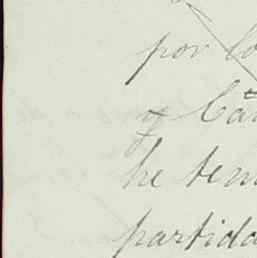 por lo
y Cá
he ten
partida